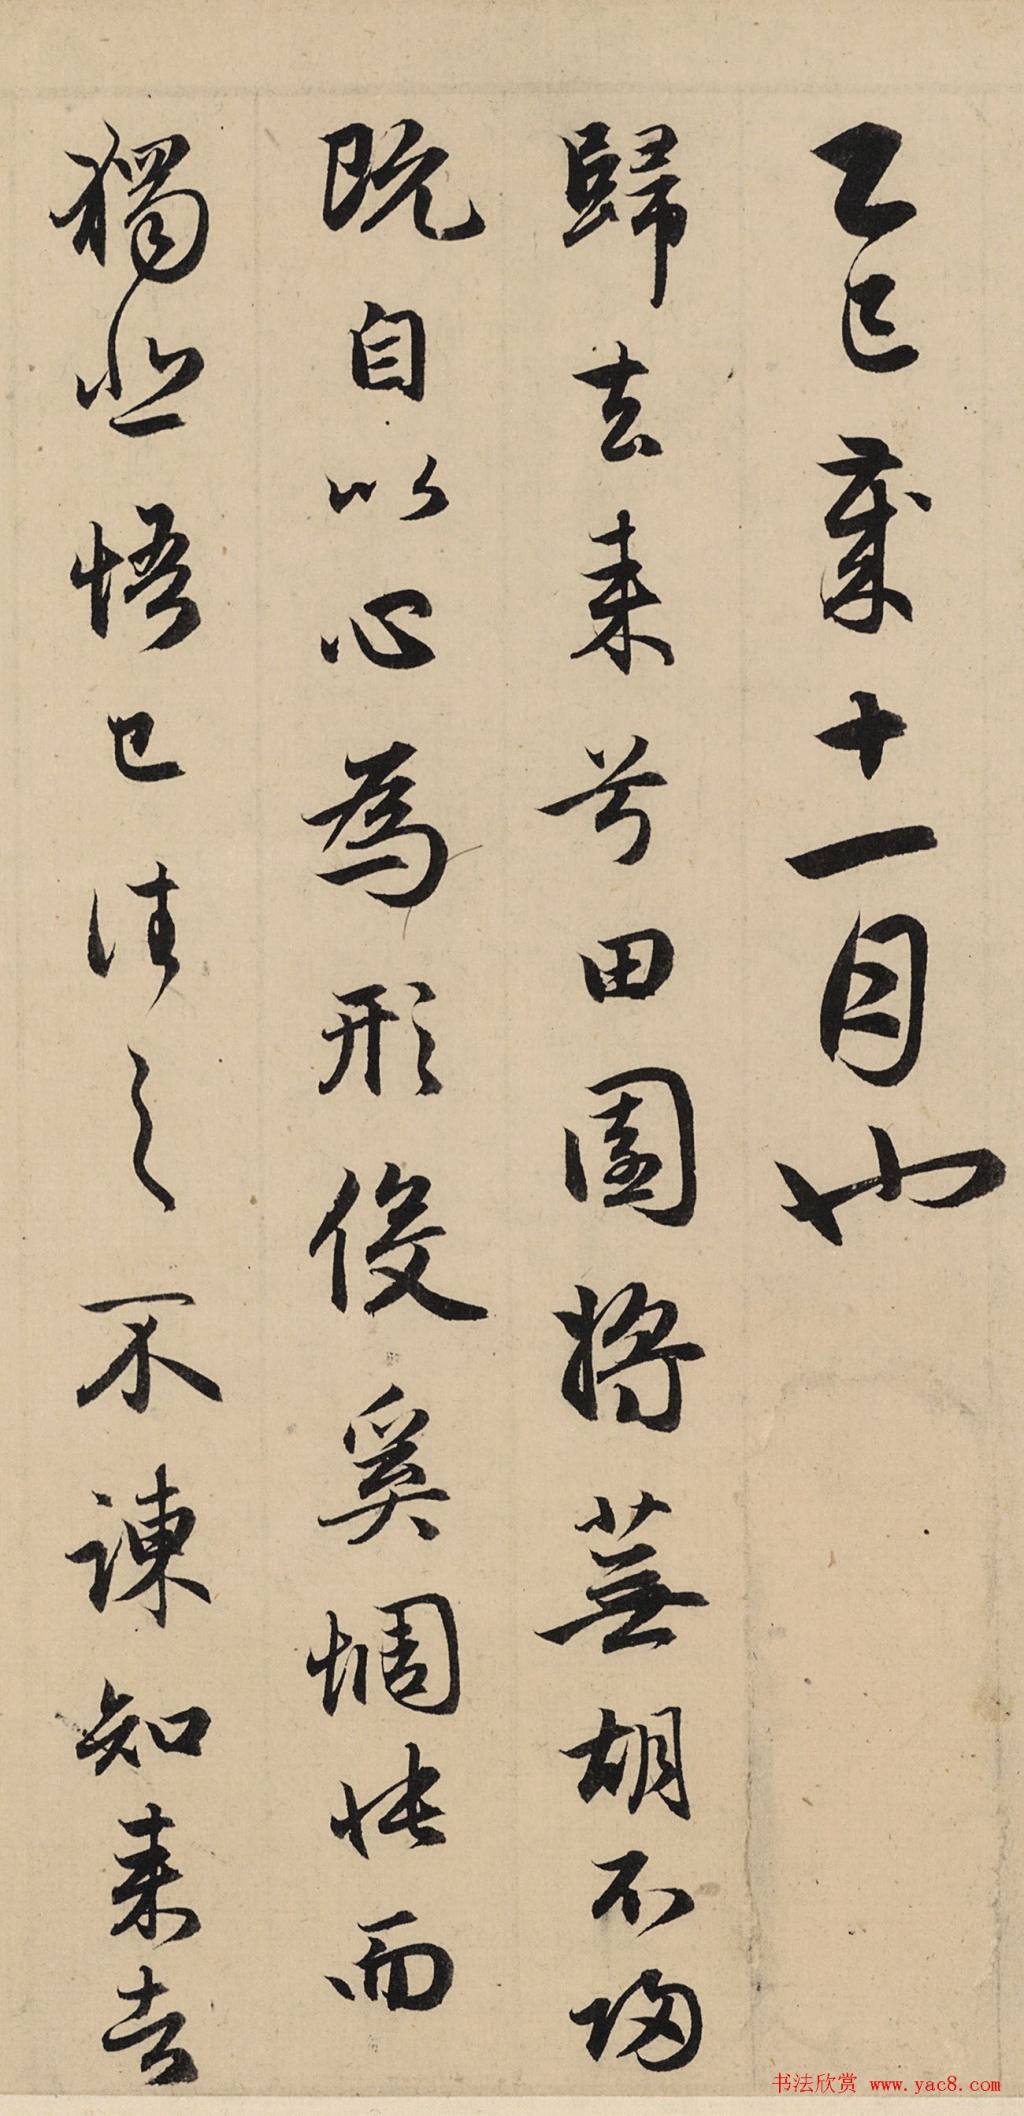 乙巳歲十一月也
歸去来兮田園將蕪胡不歸
既自以心為形役奚惆悵而
獨悲悟已往之不諫知来者
书法欣赏 www.yac8.com